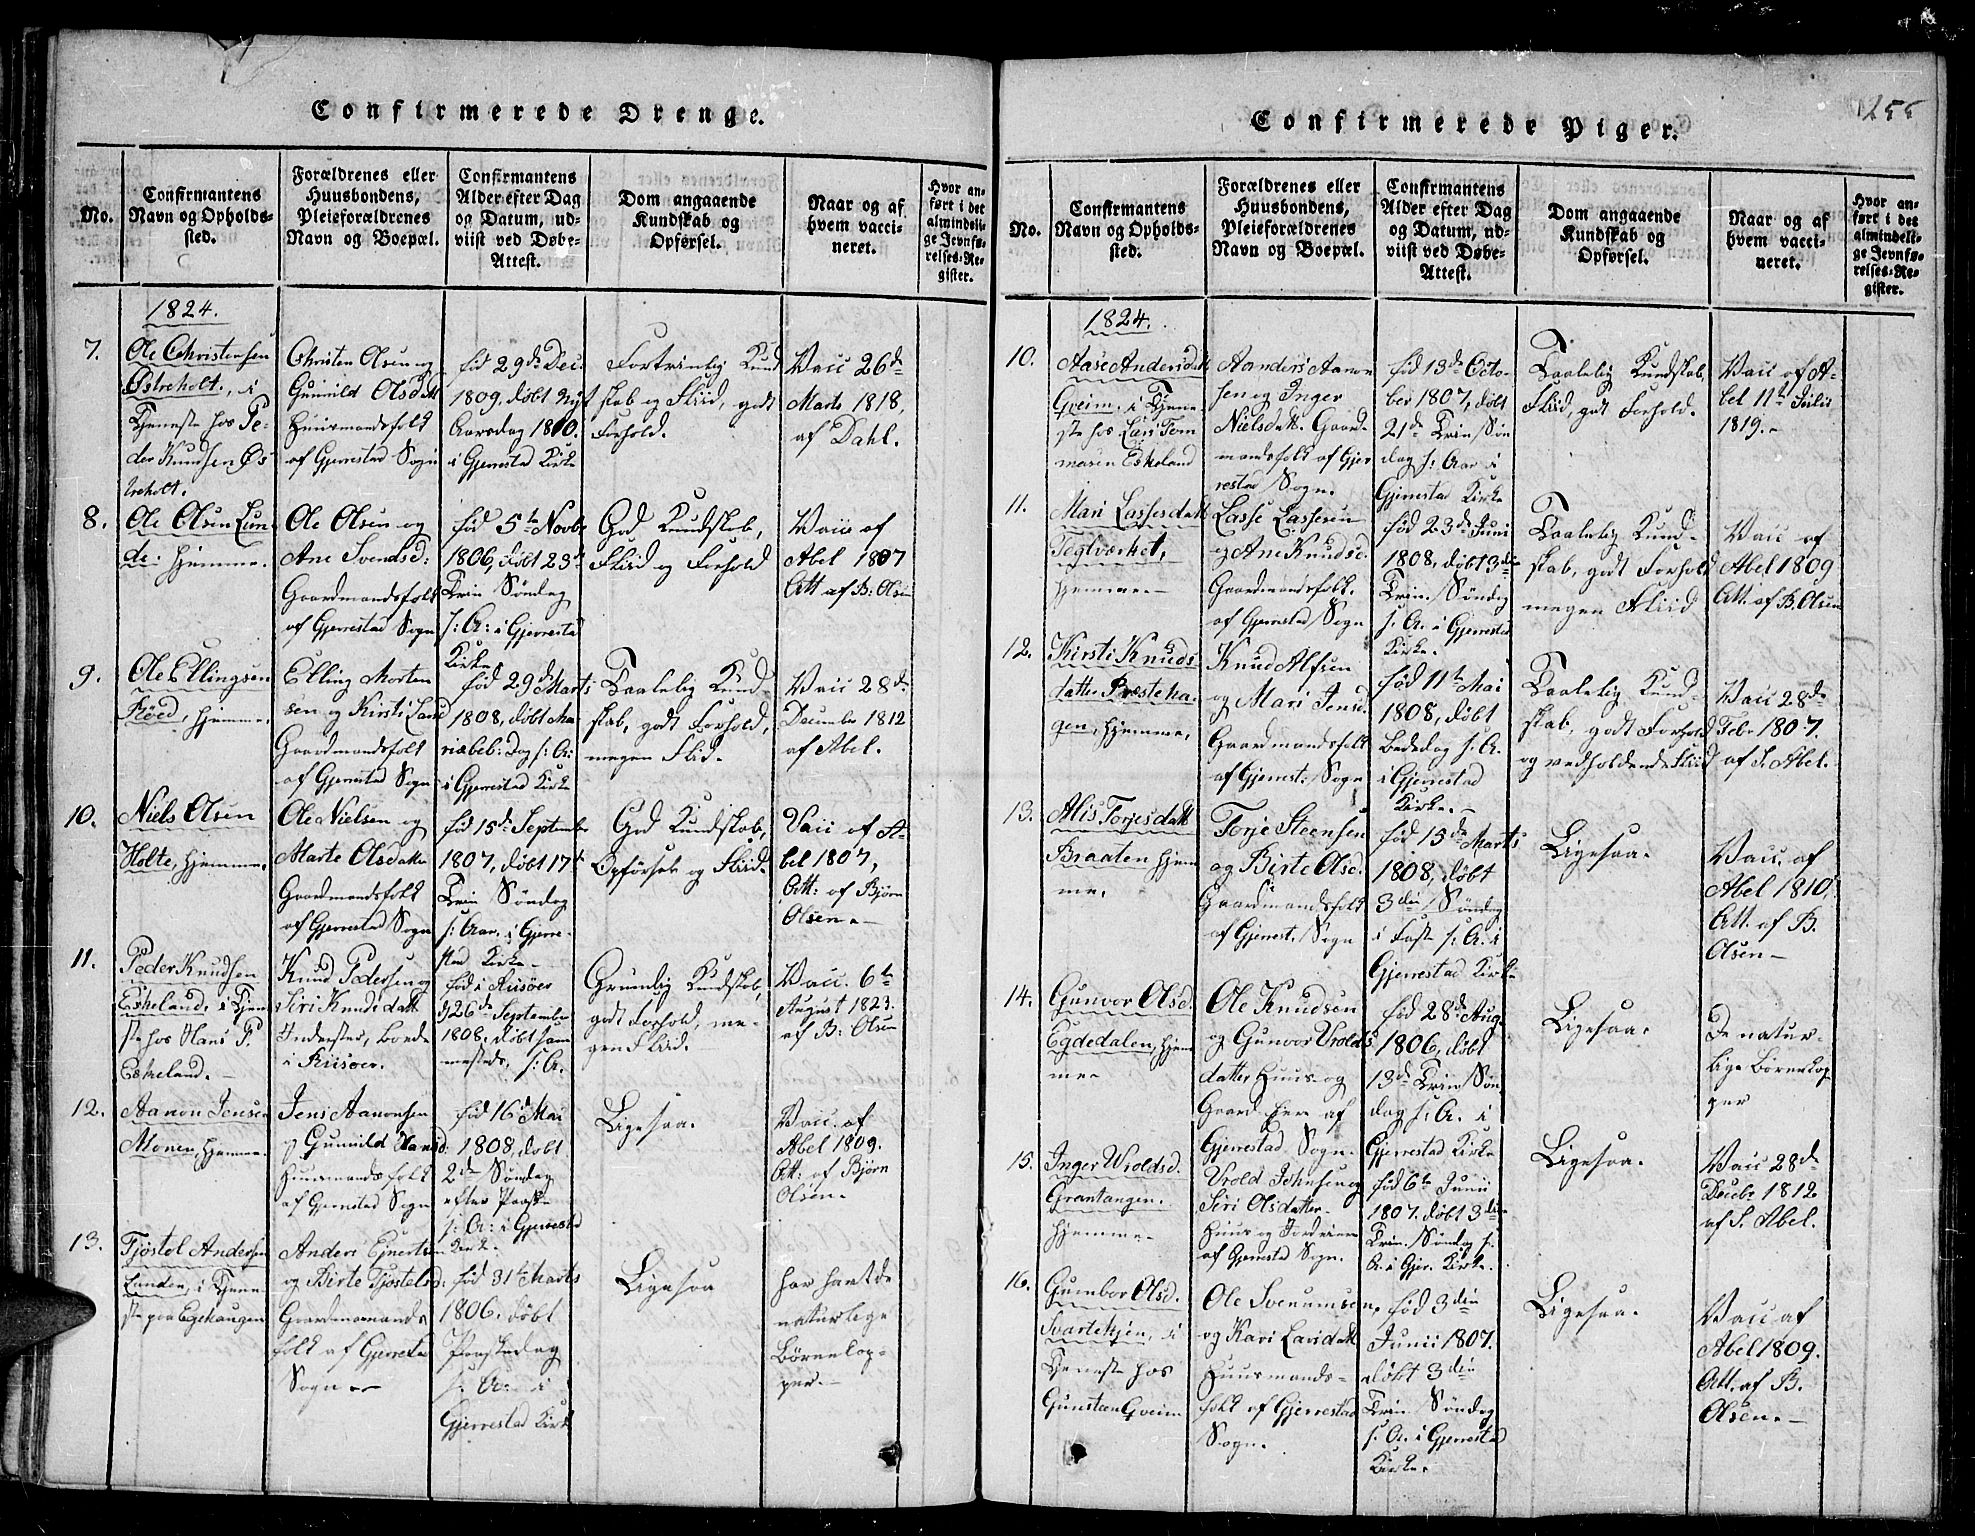 Confirmerede Drenge.
No.
Confirmantens
Navn og Opholds-
sted.
Forældrenes eller
Huusbondens,
Pleieforældrenes
Navn og Boepæl.
Confirmantens
Alder efter Dag
og Datum, ud-
viist ved Døbe-
Attest.
Dom angaaende
Kundskab og
Opførsel.
Naar og af
hvem vacci-
neret.
Hvor an-
ført i det
almindeli-
ge Jevnfø-
relses-Re-
gister.
1824.
7.
Ole Christensen
Østreholt, i
Tjeneste hos Pe-
der Knudsen Øs-
treholt.
Christen Olsen og
Gunild Olsdatt
Huusmandsfolk
af Gjerrestad Sogn
fød 29de Dec.
1809, døbt Nyt
Aarsdag 1810.
i Gjerrestad Kirke
Fortrinlig Kund
skab og Fliid, godt
Forhold.
Vacc 26de
Marts 1818,
af Dahl.
8.
Ole Olsen Lun
de. hjemme.
Ole Olsen og
Ane Svendsd:
Gaardmandsfolk
af Gjerrestad Sogn
fød 5te Novbr
1806, døbt 23de
Trin Søndag
s: A: i Gjerrestad
Kirke
God Kundskab,
Fliid og Forhold
Vacc af
Abel 1807
Att af B: Olsen
9.
Ole Ellingsen
Røed, hjemme.
Elling Morten
sen og Kirsti
Gaardmandsfolk
af Gjerrestad Sogn
fød 29de Marts
1808, døbt Ma-
riæbeb: Dag s: A:
i Gjerrestad Kirke
Taalelig Kund-
skab, godt Forhold,
megen Fliid.
Vacc 28de
December 1812
af Abel.
10.
Niels Olsen
Holte, hjemme.
Ole Nielsen og
Marte Olsdatter
Gaardmandsfolk
af Gjerrestad Sogn
fød 15de Septembr
1807, døbt 17de
Trin Søndag
s: Aar. i Gjerre-
stad Kirke
God Kundskab,
Opførsel og Fliid.
Vacc af A-
bel 1807,
Att: af Bjørn
Olsen.
11.
Peder Knudsen
Eskeland, i Tjene
ste hos Hans P.
Eskeland.
Knud Pedersen og
Siri Knudsdatt
Inderster, boende
i Riisøer.
fød i Riisøer
26de September
1808, døbt sam
mesteds, s: A.
Grundig Kundskab,
godt Forhold, me-
gen Fliid.
Vacc. 6te
August 1823.
af B: Olsen
12.
Aanon Jensen
Moen, hjemme.
Jens Aanonsen
og Gunild Hansd:
Huusmandsfolk
af Gjerrestad Sogn
fød 16 Mai
1808, døbt
2den Søndag
efter Paask
s: A: i Gjerrestad
Kirke.
Ligesaa.
Vacc. af
Abel 1809.
Att: af Bjørn
Olsen.
13.
Tjøstol Andersen
Lunden, i Tjene
ste paa Egehaugen
Anders Ejvertsen
og Birte Tjøstelsd:
Gaardmands
folk af Gjerrestad
Sogn.
fød 31te Marts
1806. døbt
Paaskedag
s: A: i
Gjerrestad Kirke
Ligesaa
har havt de
naturlige
Børnekop-
per.
255
Confirmerede Piger.
No.
Confirmantens
Navn og Opholds-
sted.
Forældrenes eller
Huusbondens,
Pleieforældrenes
Navn og Boepæl.
Confirmantens
Alder efter Dag
og Datum, ud-
viist ved Døbe-
Attest.
Dom angaaende
Kundskab og
Opførsel.
Naar og af
hvem vacci-
neret.
Hvor an-
ført i det
almindeli-
ge Jevnfø-
relses-Re-
gister.
1824.
10.
Aase Andersdatt
Gveim, i Tjene-
ste hos Lars Tom
mesen Eskeland
Aanders Aanon
sen og Inger
Nielsdatt. Gaard-
mandsfolk af Gjer
restad Sogn.
fød 13de Octo-
ber 1807, døbt
21de Trin Søn
dag s: Aar i
Gjerrestad Kirke
Taalelig Kundskab,
Fliid, godt Forhold.
Vacc af A-
bel 11te
1819.
11.
Mari Lassesdatt
Teglverket,
hjemme.
Lasse Lassesen
og Ane Knudsd.
Gaardmandsfolk.
af Gjerrestad Sogn
fød 23de Juni
1808, døbt 3die
Trin. Søndag
s: A. i Gjerrestad
Kirke.
Taalelig Kund-
skab, godt Forhold
megen Fliid
Vacc af
Abel 1809
Att. af B. Olsen
12.
Kirsti Knuds
datter Presteha-
gen, hjemme,
Knud Alfsen
og Mari Jensd.
Gaardmandsfolk
af Gjerrest: Sogn
fød 11te Mai
1808, døbt
Bededag s: A.
i Gjerrestad
Kirke.
Taalelig Kund-
skab, godt Forhold
og vedholdende Fliid
Vacc 28de
Febr 1807.
af S. Abel.
13.
Alis Torjesdatt
Braaten hjem
me.
Torje Steensen
og Birte Olsd.
Gaardmandsfolk
af Gjerrest. Sogn
fød 15de Marts
1808, døbt
3die Søndag
i Faste s: A. i
Gjerrestad Kirke
Ligesaa.
Vacc. af
Abel 1810,
Att. af B.
Olsen
14.
Gunvor Olsd.
Egdedalen, hjem
me
Ole Knudsen
og Gunvor Vrolds
datter Huus og
Gaard af
Gjerrestad Sogn.
fød 28de Aug.
1806, døbt
13de Trin Søn
dag s: A. i
Gjerrestad Kirke
Ligesaa.
De natur-
lige Børnekop
per
15.
Inger Vroldsd.
Grantangen.
hjemme
Vrold Johnsen og
Siri Olsdatter
Huus og
af Gjerrestad Sogn.
fød 6te Junii
1807. døbt 3die
Trin. Søndag s:
A. i Gjer. Kirke.
Ligesaa.
Vacc 28de
Decbr 1812
af S. Abel.
16.
Gumbor Olsd.
Svartekjen, i
Tjeneste hos
Gunsteen Gveim
Ole Svenumsen,
og Kari Larsdatt
Huusmands-
folk af Gjerrestad
Sogn.
fød 3die
Junii 1807.
døbt 3die
Trin Søndag
s: A. i Gjerrestad
Kirke.
Ligesaa.
Vacc af
Abel 1809.
Att. af B.
Olsen.